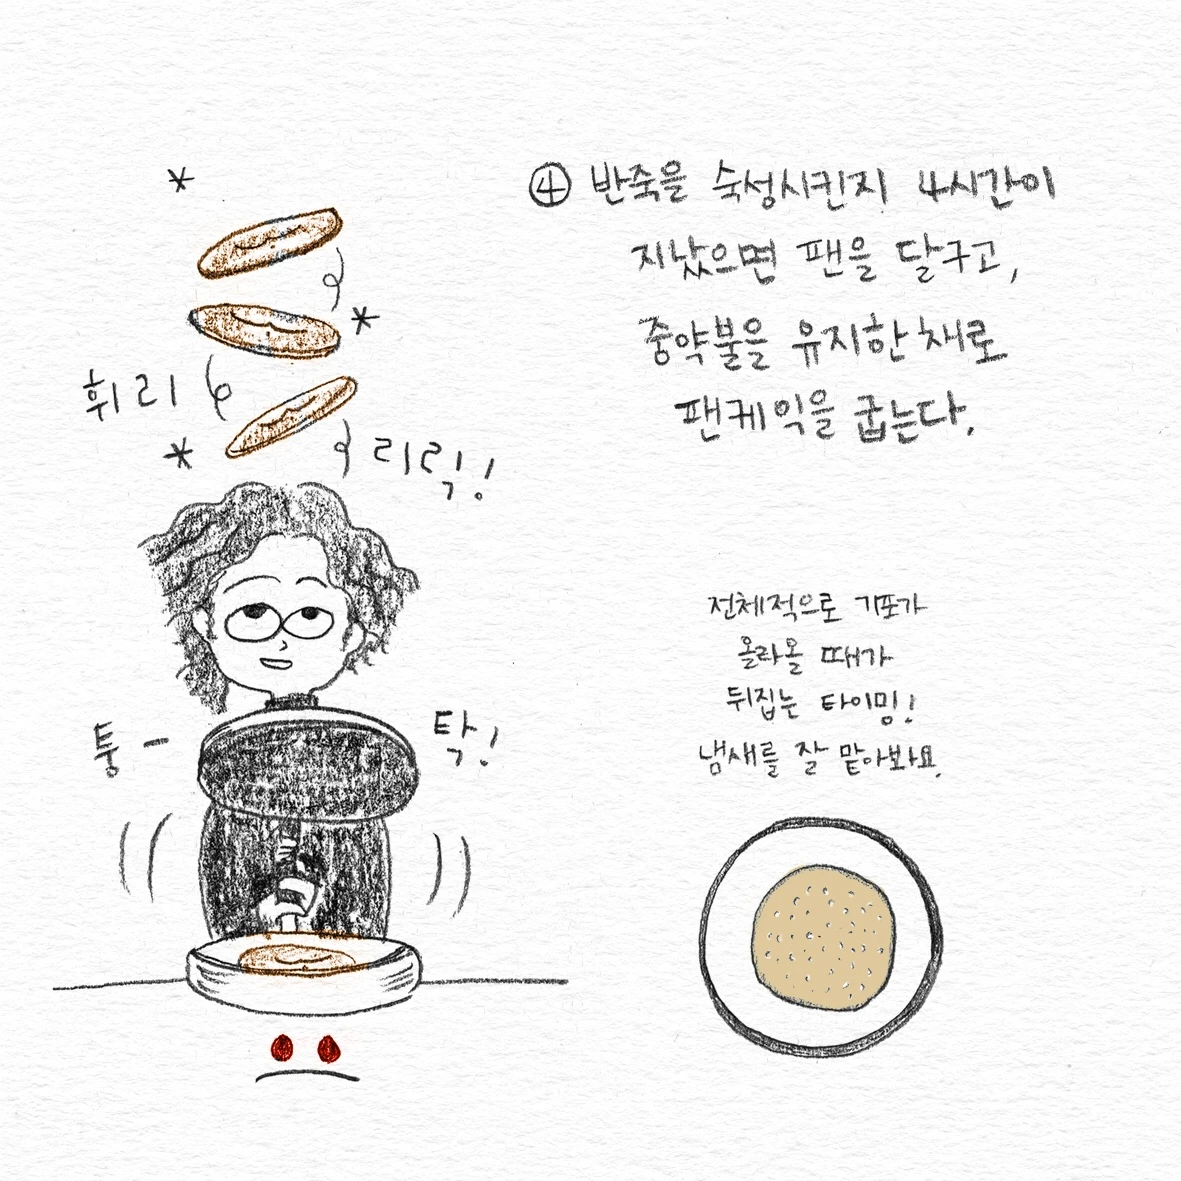 ④ 반죽을 숙성시킨지 4시간이
지났으면 팬을 달구고,
중약불을 유지한채로
팬케익을 굽는다.
휘리
리릭!
전체적으로 기포가
올라올 때가
뒤집는 타이밍!
냄새를 잘 맡아봐요.
퉁-
탁!